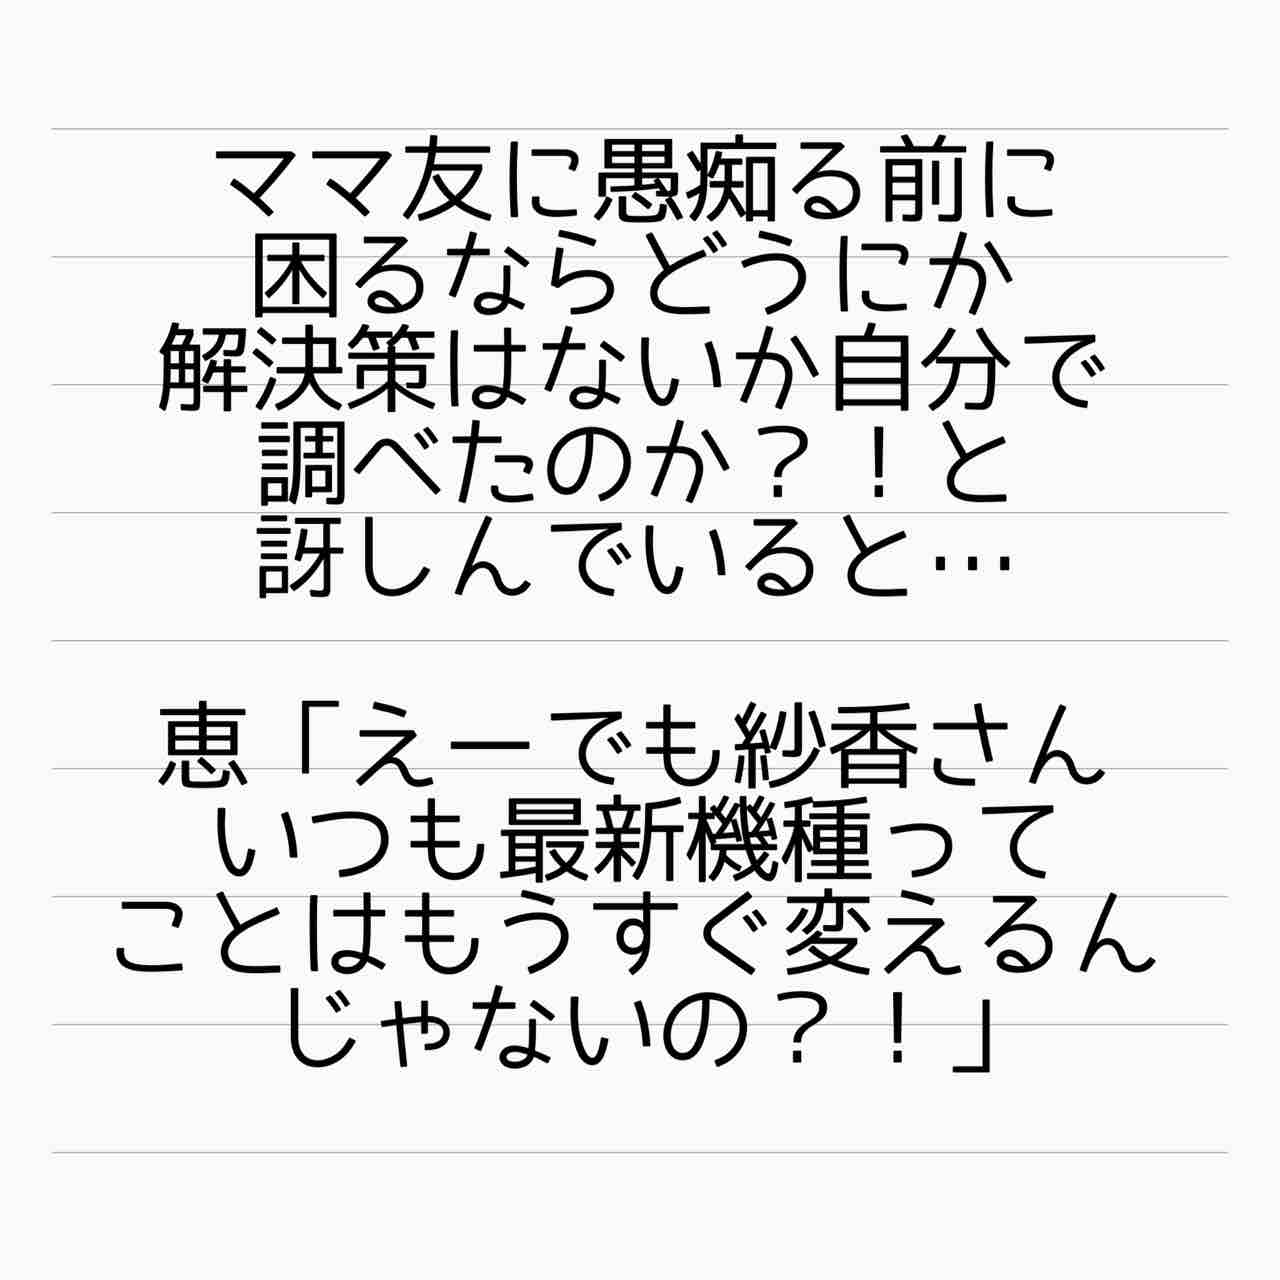 ママ友に愚痴る前に
困るならどうにか
解決策はないか自分で
調べたのか？！と
訝しんでいると…
恵「えーでも紗香さん
いつも最新機種って
ことはもうすぐ変えるん
じゃないの？！」